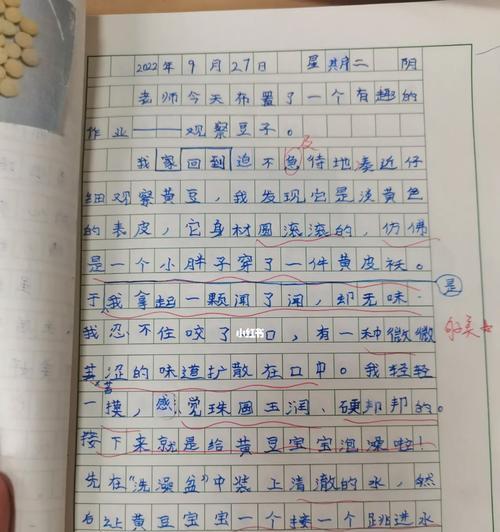 2022年9月27日 星期二 阴
老师今天布置了一个有趣的
作业——观察豆子。
我家回到迫不急待地凑近仔
及
细观察黄豆，我发现它是淡黄色
的表皮，它身材圆滚滚的，仿佛
是一个小胖子穿了一件黄皮袄。
于我拿起一颗闻了闻，却无味.
是
我忍不住咬了口，有一种微微
苦涩的味道扩散在口中。我轻轻
一摸，感觉珠圆玉润、硬邦邦的。
接下来就是给黄豆宝宝泡澡啦！
先在“洗澡盆”中装上清澈的水，然
后让黄豆宝宝一个接一个跳进水
小红书